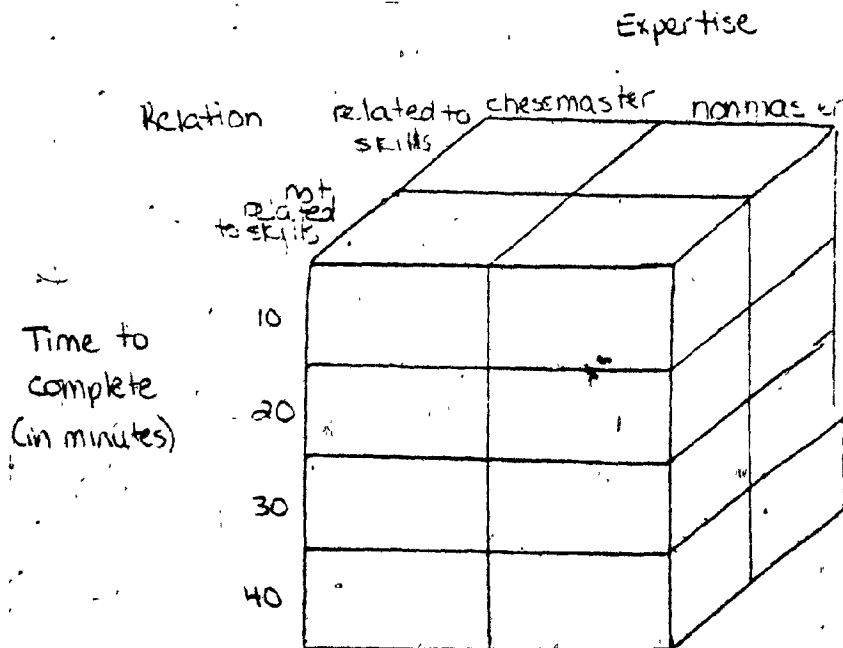 Expertise
Relation related to chessmaster nonmaster
skills
not
related
to skills
10
Time to
complete
20
(in minutes)
30
40